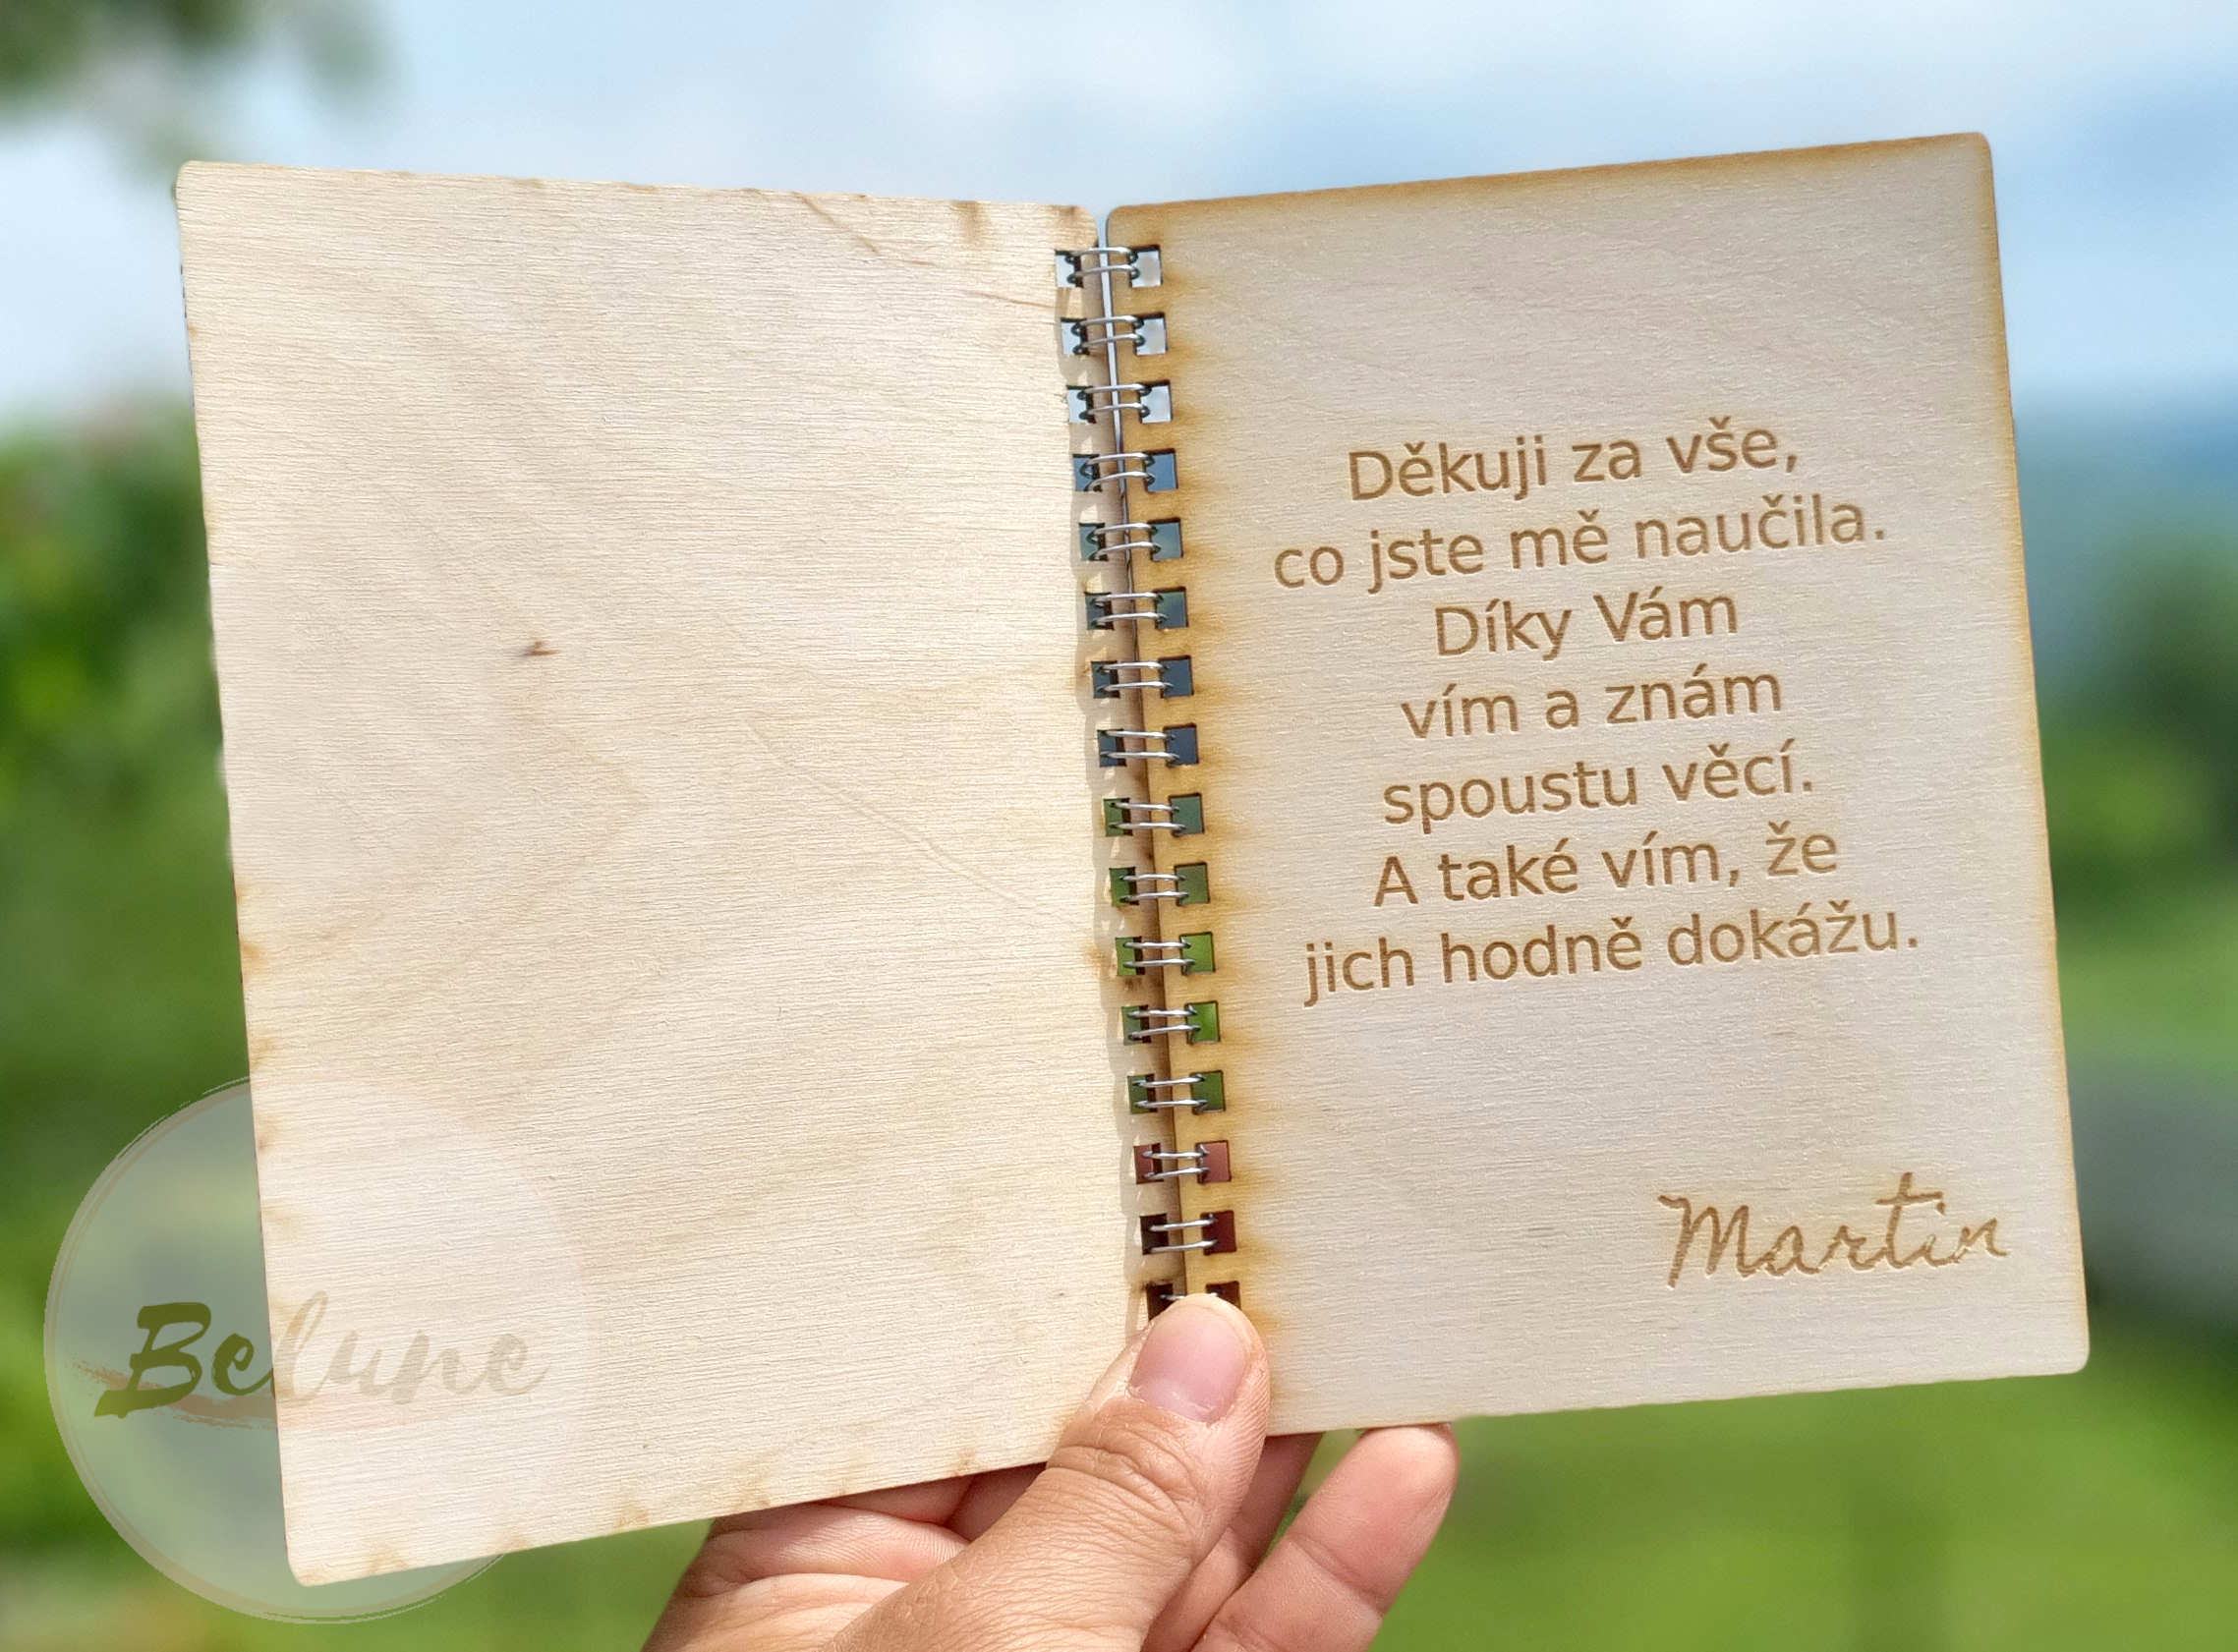 Děkuji za vše,
co jste mě naučila.
Díky Vám
vím a znám
spoustu věcí.
A také vím, že
jich hodně dokážu.
Martin
Belune